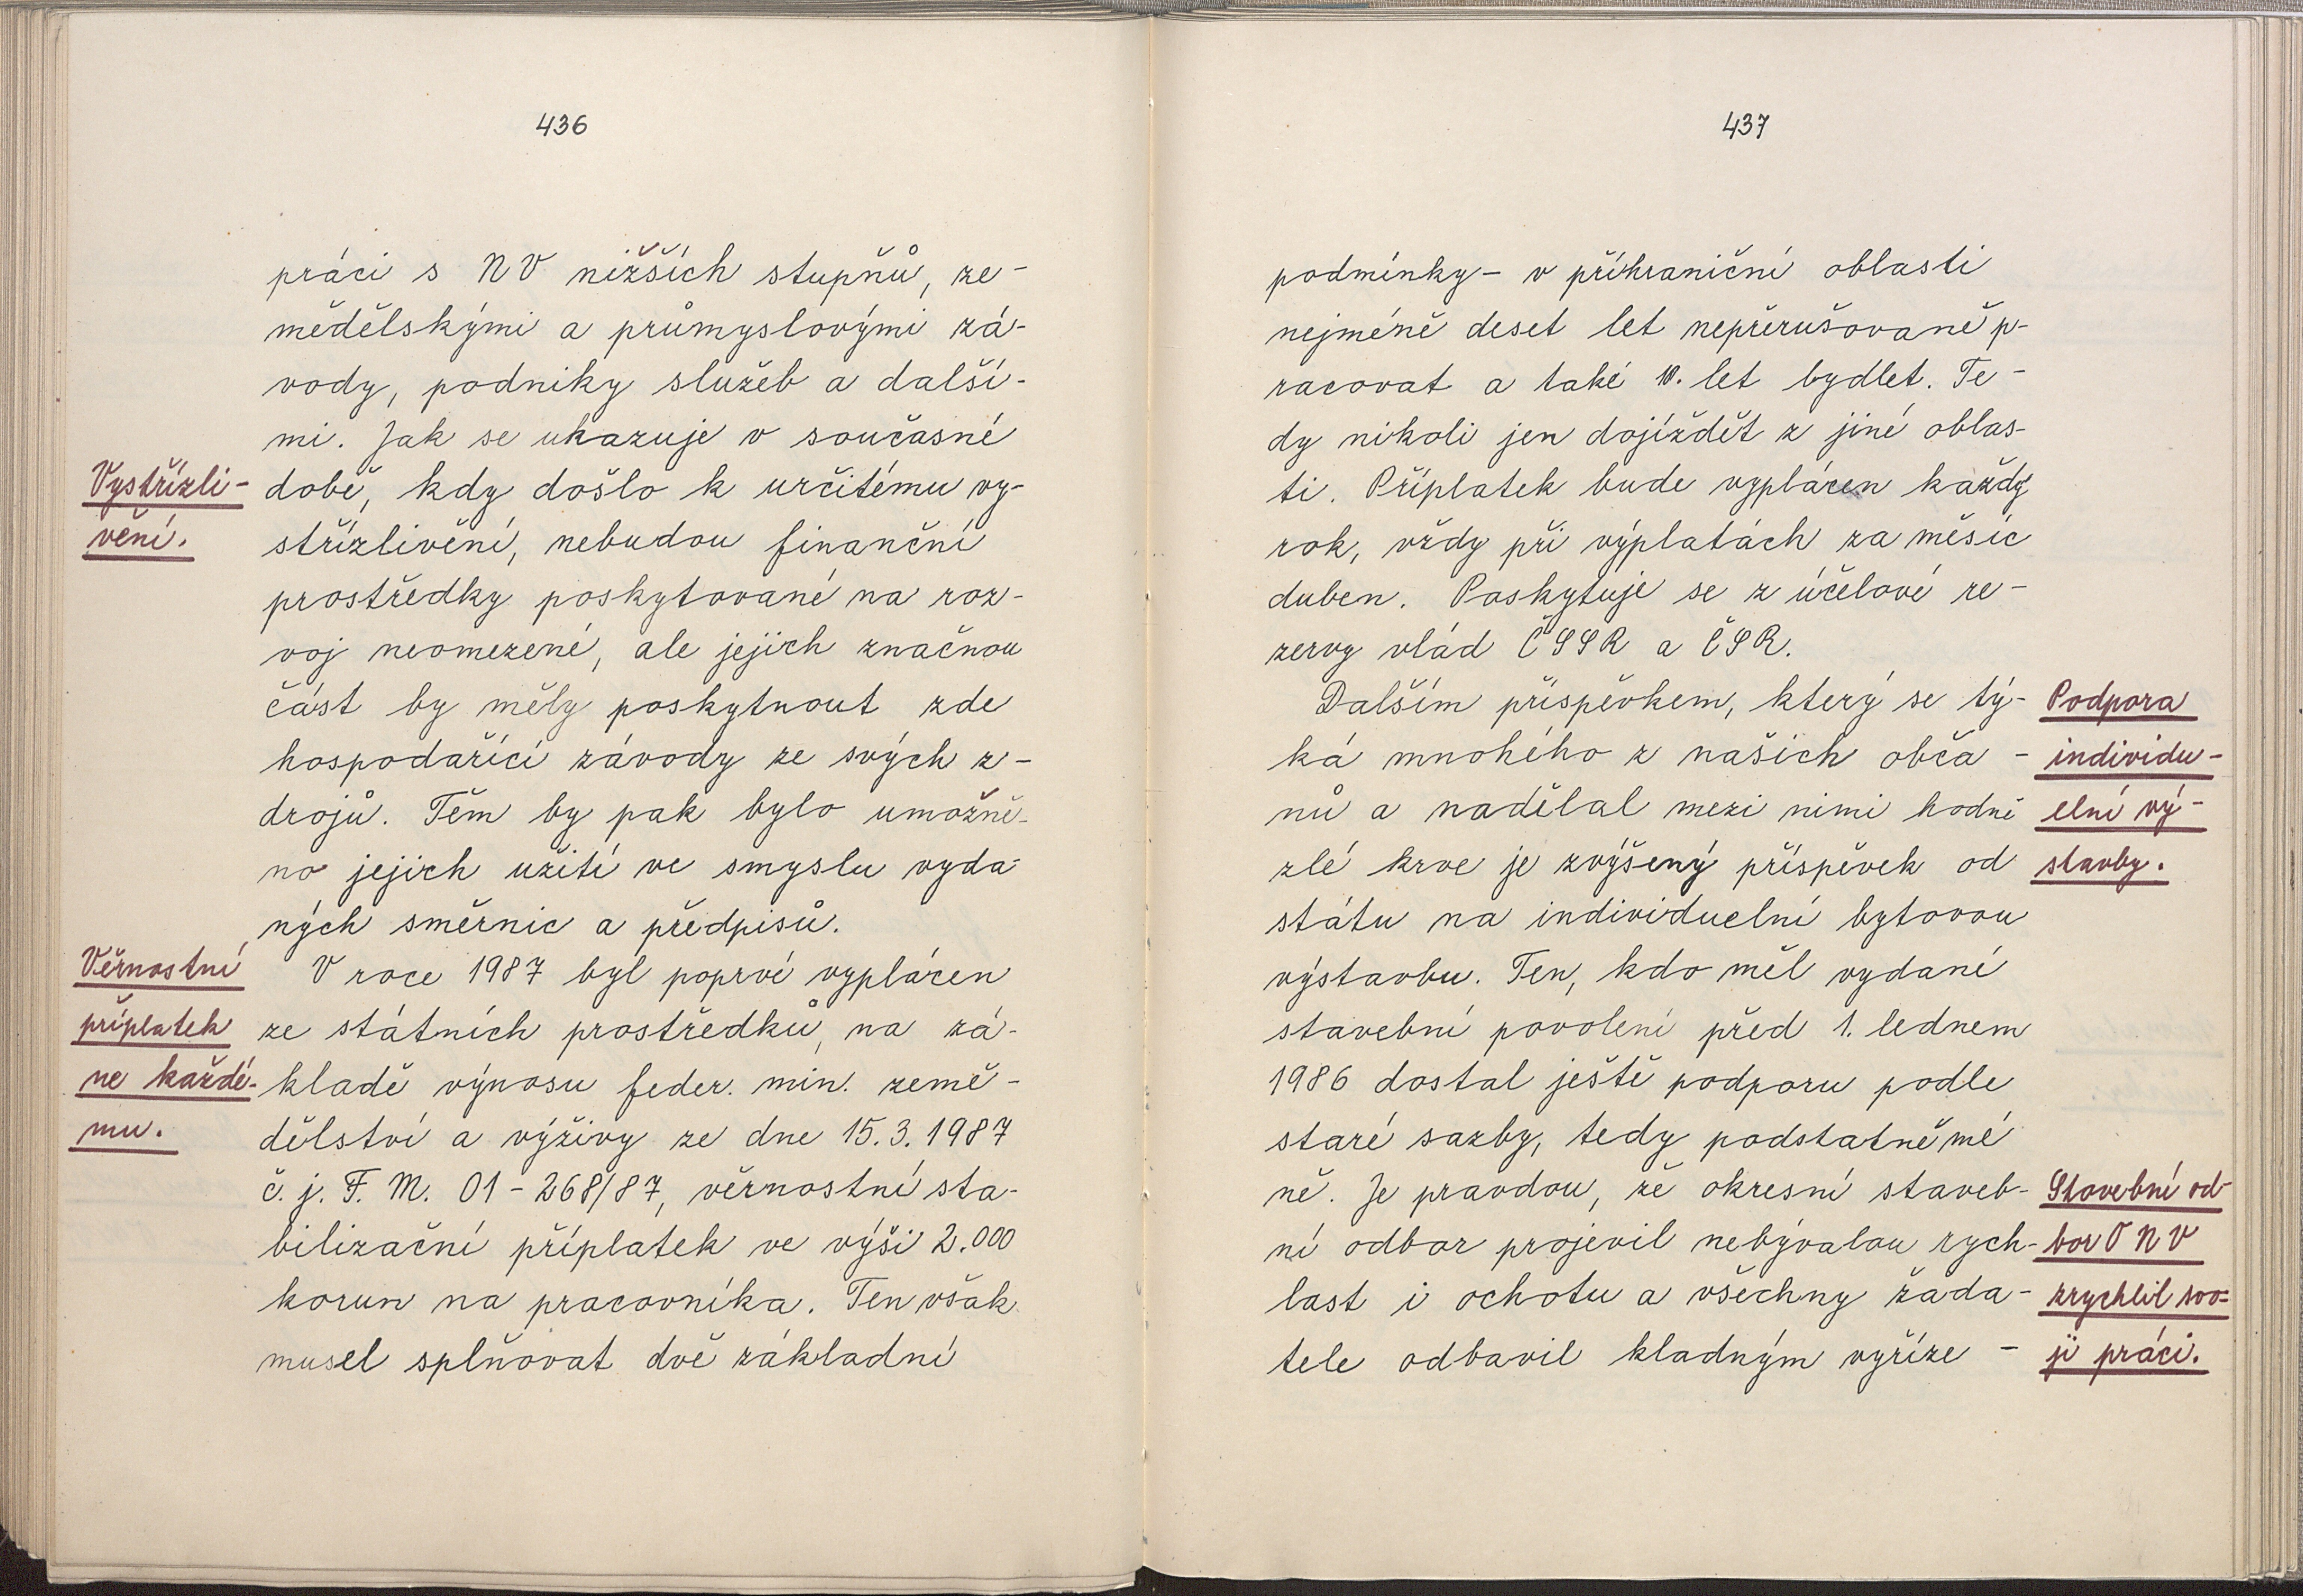 436
práci s NV nižších stupňů, ze-
mědělskými a průmyslovými zá-
vody, podniky služeb a další-
mi. Jak se ukazuje v současné
Vystřízli-
době, kdy došlo k určitému vy-
vění.
střízlivění, nebudou finanční
prostředky poskytované na roz-
voj neomezené, ale jejich značnou
část by měly poskytnout zde
hospodařící závody ze svých z-
drojů. Těm by pak bylo umožně-
no jejich užití ve smyslu vyda-
ných směrnic a předpisů.
Věrnostní
V roce 1987 byl poprvé vyplácen
příplatek
ze státních prostředků, na zá-
ne každé-
kladě výnosu feder. min. země-
mu.
dělství a výživy ze dne 15.3.1987
č. j. F. M. 01-268/87, věrnostní sta-
bilizační příplatek ve výši 2.000
korun na pracovníka. Ten však
musel splňovat dvě základní
437
podmínky - v příhraniční oblasti
nejméně deset let nepřerušovaně p-
racovat a také 10. let bydlet. Te-
dy nikoli jen dojíždět z jiné oblas-
ti. Příplatek bude vyplácen každý
rok, vždy při výplatách za měsíc
duben. Poskytuje se z účelové re-
zervy vlád ČSSR a ČSR.
Dalším příspěvkem, který se tý-
Podpora
ká mnohého z našich obča-
individu-
nů a nadělal mezi nimi hodně
elní vý-
zlé krve je zvýšený příspěvek od
stavby.
státu na individuelní bytovou
výstavbu. Ten, kdo měl vydané
stavební povolení před 1. lednem
1986 dostal ještě podporu podle
staré sazby, tedy podstatně mé
ně. Je pravdou, že okresní staveb-
Stavební od-
ní odbor projevil nebývalou rych-
bor ONV
lost i ochotu a všechny žada-
zrychlil svo-
tele odbavil kladným vyříze-
ji práci.